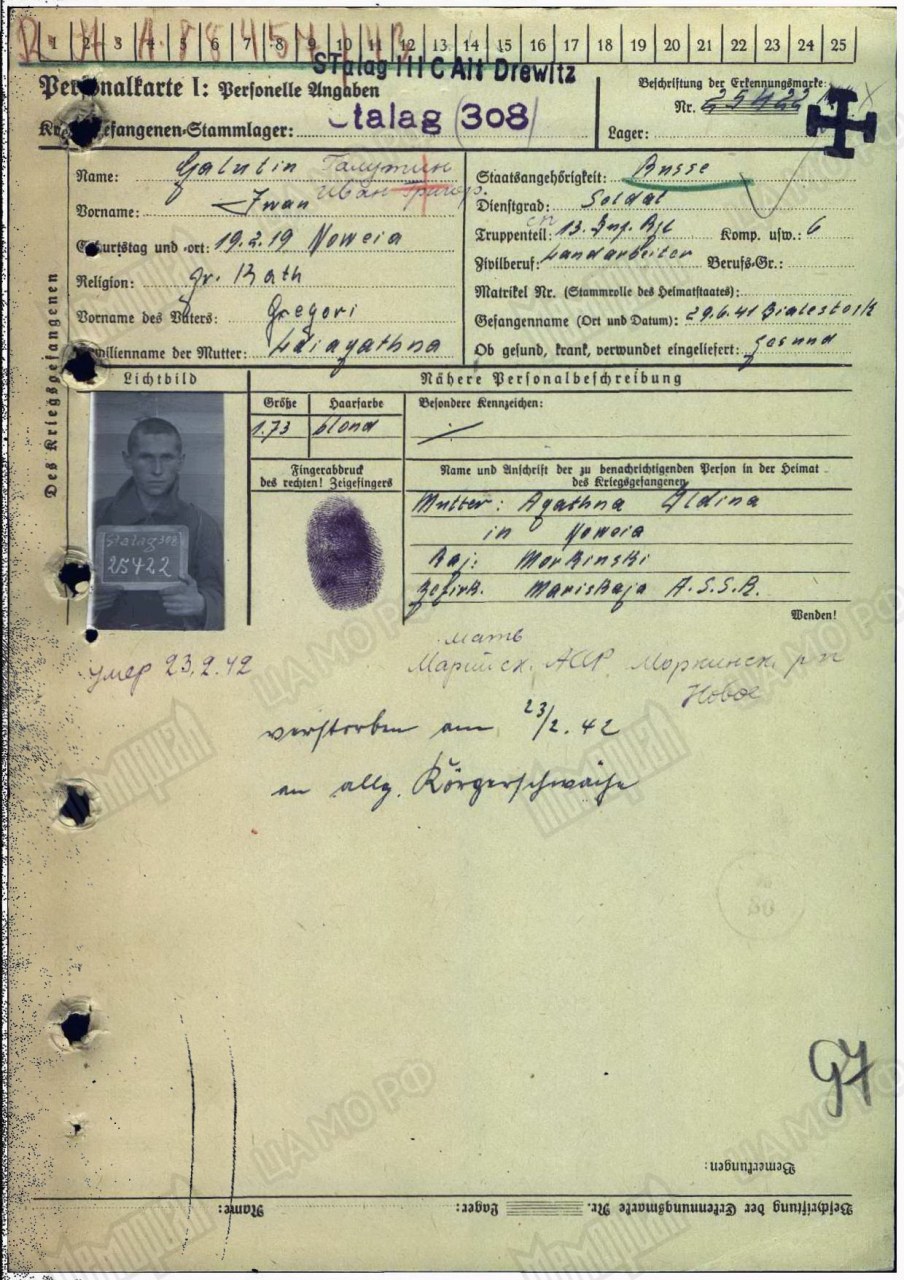 1 2 3 4 5 6 7 8 9 10 11 12 13 14 15 16 17 18 19 20 21 22 23 24 25
STalag III C Alt Drewitz
Personalkarte I: Personelle Angaben
Kriegsgefangenen-Stammlager: Stalag (308)
Beschriftung der Erkennungsmarke:
Nr. 25422
Lager:
Des Kriegsgefangenen
Name: Galutin Галутин
Vorname: Iwan Иван Григор.
Geburtstag und -ort: 19.2.19 Noweia
Religion: Gr. Kath
Vorname des Vaters: Gregori
Familienname der Mutter:
Staatsangehörigkeit: Russe
Dienstgrad: Soldat
Truppenteil: 13.
Komp. usw.: 6
Zivilberuf: Landarbeiter Berufs-Gr.:
Matrikel Nr. (Stammrolle des Heimatstaates):
Gefangenname (Ort und Datum): 29.6.41 Bialestock
Ob gesund, krank, verwundet eingeliefert: gesund
Lichtbild
Stalag 308
25422
Nähere Personalbeschreibung
Größe Haarfarbe Besondere Kennzeichen:
1.73 blond
Fingerabdruck
des rechten! Zeigefingers
Name und Anschrift der zu benachrichtigenden Person in der Heimat
des Kriegsgefangenen
Mutter: Agathna Aldina
in Noweia
Raj: Morkinski
Bezirk. Mariskaja A.S.S.R.
Wenden!
мать
Марийск. АССР Моркинск. р-н
Новое
умер 23.2.42
verstorben am 23/2.42
an allg. Körperschwäche
97
Bemerkungen:
Beschriftung der Erkennungsmarke Nr. Lager: Name:
ЦА МО РФ